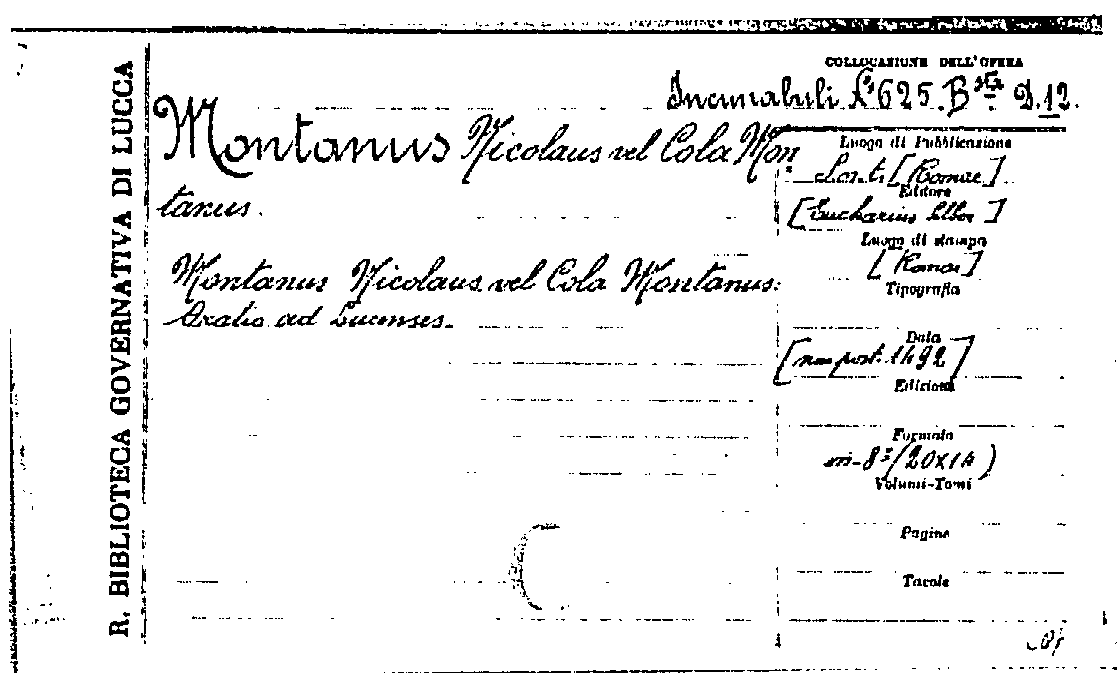 R. BIBLIOTECA GOVERNATIVA DI LUCCA
COLLOCAZIONE DELL'OPERA
Incunabuli N° 625. Bsta D.12.
Montanus Nicolaus vel Cola Mon
tanus.
Montanus Nicolaus vel Cola Montanus:
Oratio ad Lucenses.
Luogo di Pubblicazione
[Romae]
Editore
[Eucharius Silber]
Luogo di stampa
[Romae]
Tipografia
Data
[non post. 1492]
Edizione
Formato
in-8° (20x14)
Volumi-Tomi
Pagine
Tavole